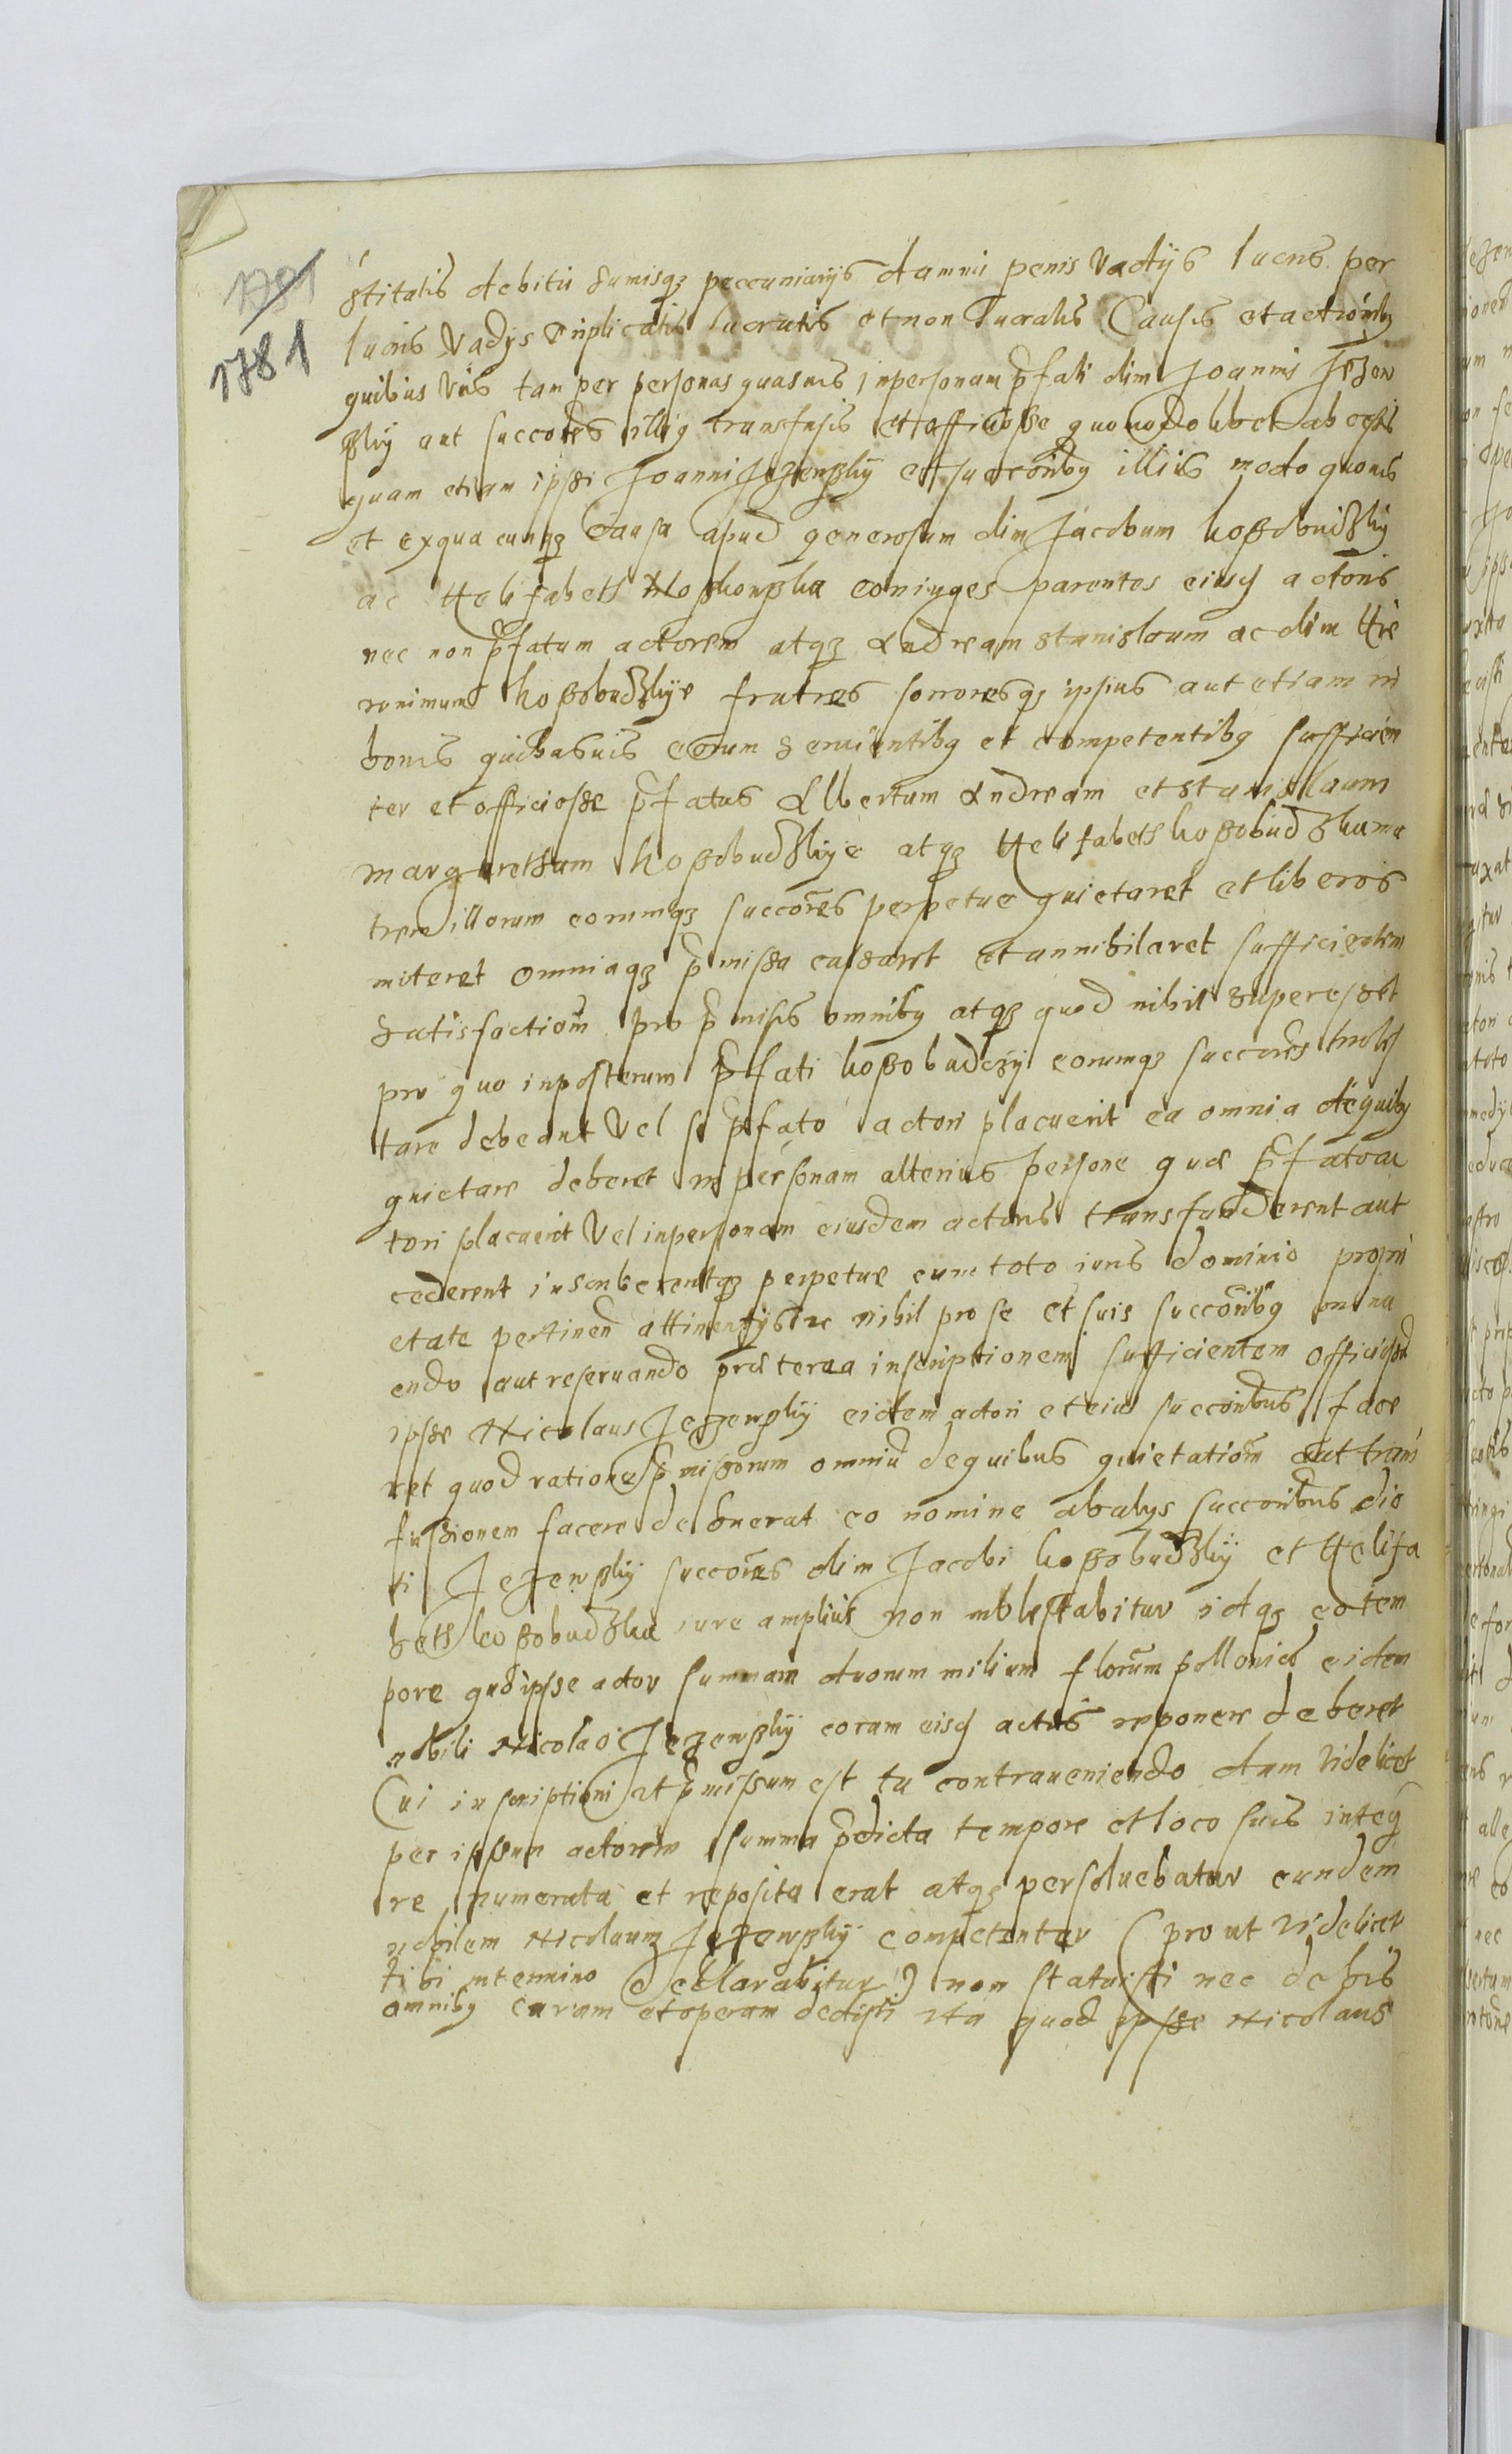 1791
1781
stitatis debitis summisqz peccuniarijs damnis penis Vadijs lucris per
lucris Vadys triplicatis lucratis et non lucratis Causis et actionibq
quibus vis tam per personas quasvis in personam pfati olim Joannis Jezew
skij aut succores illiq transfusis et officiose quomodolibet ab eis
quam etiam ipsi Joanni Jezewskij et succoribq illius modo quovis
et exqua cunqz Causa apud generosum olim Jacobum kossobudskij
ac Helisabeth coniuges parentes eiusd actoris
nec non pfatum actorem atqz Andream stanislaum ac olim Hie
ronimum kossobudskije fratres sororesqz ipsius aut etiam in
bonis quibusvis eorum servientibq et competentibq sufficien
ter et officiose pfatus Albertum Andream et stanislaum
margaretham kossobudskije atqz Helisabeth kossobudska ma
trem illorum eorumqz succores perpetue quietaret et liberos
miteret omniaqz pmissa cassaret et annihilaret sufficientem
satisfactiom pro pmissis omnibq atqz quod nihil superesset
pro quo inposterum pfati kossobudscij eorumqz succores
tare debeant Vel si pfato actori placuerit ea omnia dequibq
quietare deberet in personam alterius persone quæ pfato ac
tori placuerit Vel inpersonam eiusdem actoris transfunderent aut
cederent inscriberentqz perpetue cum toto iuris dominio propri
etate pertinen attinentijsqz nihil pro se et suis succoribq omina
endo aut reservando præterea inscriptionem sufficientem officiosa
ipse Nicolaus Jezewskij eidem actori et eius succoribus face
ret quod ratione pmissorum omniu dequibus quietatiom aut trans
fusionem facere debuerat eo nomine ab alys succoribus dic
ti Jezewskij succores olim Jacobi kossobudskij et Helisa
beth kossobudska iure amplius non molestabitur idqz eo tem
pore quo ipse actor summam duorum milium florum pollonici eidem
nobili Nicolao Jezewskij coram eisd actis reponere deberet
Cui inscriptioni ut pmissum est tu contraveniendo dum Videlicet
per ipsum actorem summa pdicta tempore et loco suis integ
re numerata et reposita erat atqz persoluebatur eundem
nobilem Nicolaum Jezewskij competenter (prout Videlicet
tibi in termino declarabitur) non statuisti nec de his
omnibq curam et operam dedisti Ita quod ipse Nicolaus